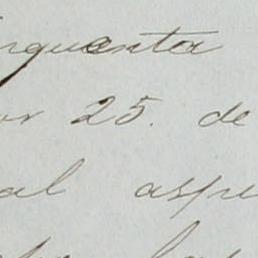 nquenta
or 25. de
al aspe